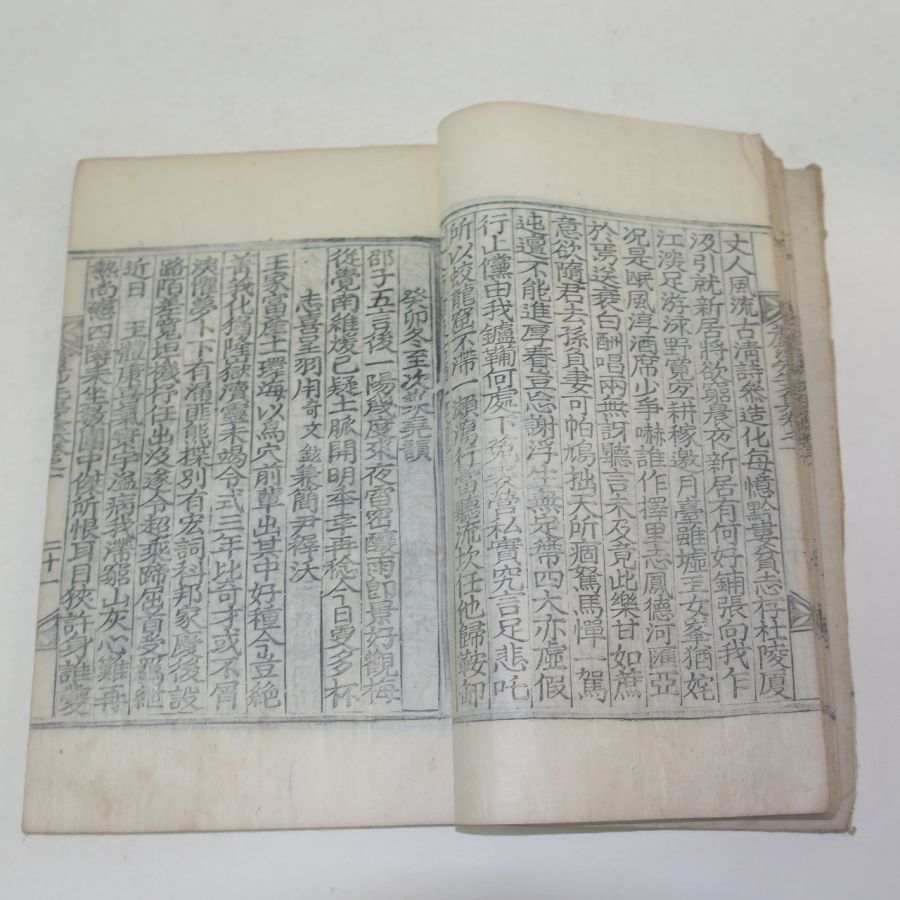 丈人風流古淸詩然造化每憶黔婁貧志存杜陵厦
汲引就新居將欲窮是夜新居有何好鋪張向我乍
江淡足游泳野寬宜耕稼邀月臺雖墟玉女峯猶姹
况是民風淳酒席少爭嚇誰作擇里志鳳德河滙亞
於焉送裘白酬唱兩無訝聽言未及竟此樂甘如蔗
意欲隨君去孫負妻可帕鳩拙天所痼駑馬憚一駕
迍邅不能進厚眷豈忘謝浮生無足帶四大亦虛假
行止儻由我鑪鞴何處下 營私實究言足悲吒
所以蛟龍窟不滯一瀨瀉行當聽流坎任他歸鞍卸
癸卯冬至次 堯韻
邵子五言後一陽段度來夜雷密釀雨卽景好觀梅
從覺南維煖已疑土脈開明牽幸再稔今日更多杯
志喜呈羽用奇文鉉兼簡尹稺沃
王家富產土環海以爲穴前輩出其中好種今豈絶
菁莪化猶隆嶽瀆靈未竭令式三年比奇才或不屑
渙 夢卜下有濯匪熊楪別有宏詞科邦家慶後設
路陌差寬 機行任出沒遂令超乘蹄屈首受羈紲
近日 玉體康喜氣寰宇溢病我滯窮山灰心難再
熱尚 四隣未生 圍中 所恨耳目狹許身誰
二十一